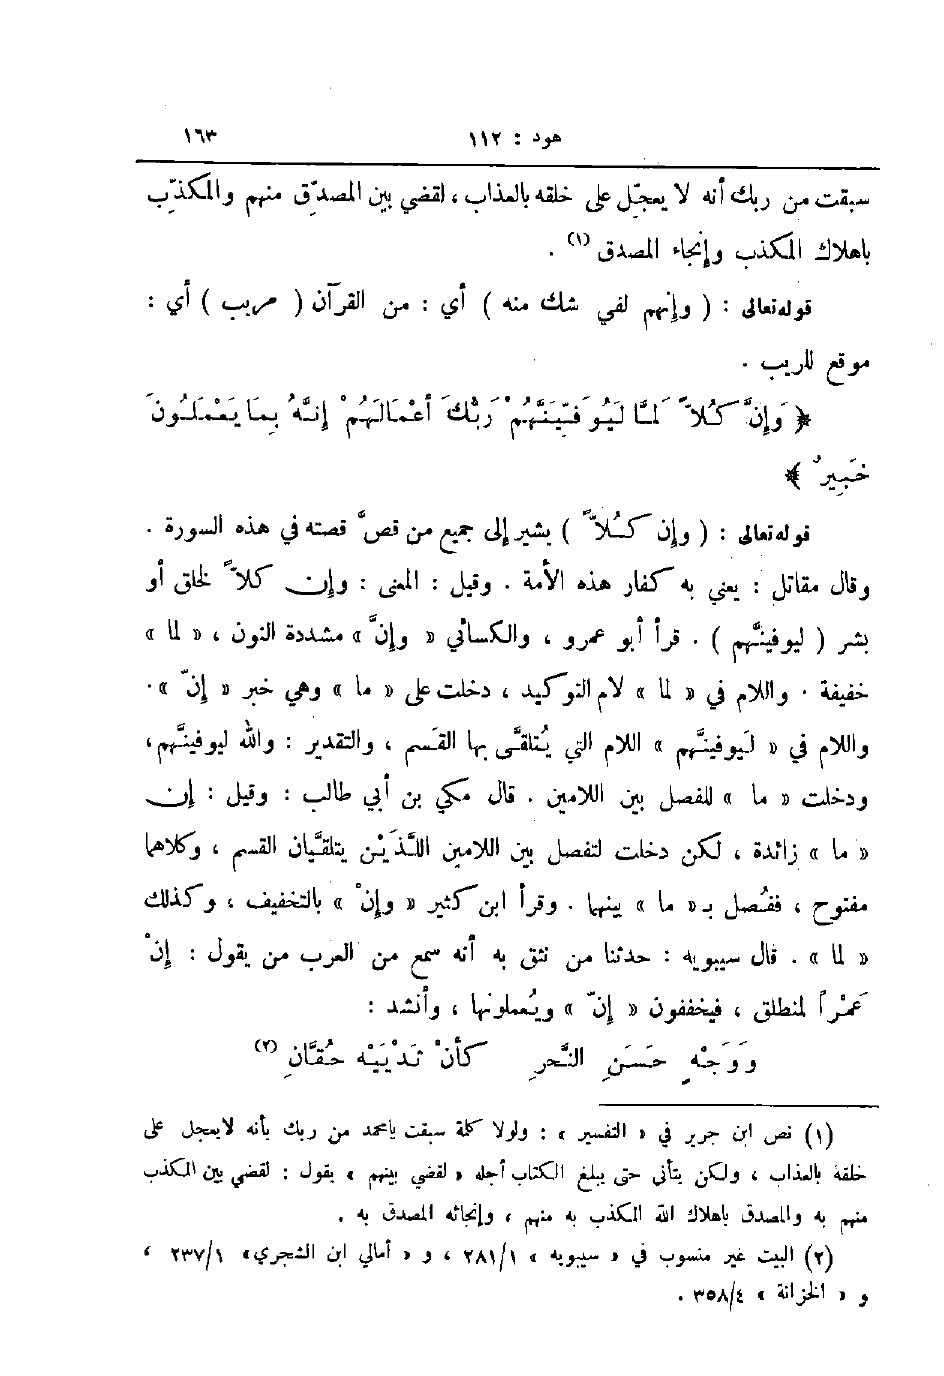 هود : ١١٢ ١٦٣
سبقت من ربك أنه لا يعجّل على خلقه بالعذاب ، لقضي بين المصدِّق منهم والمكذِّب
باهلاك المكذب وإنجاء المصدق (١) .
قوله تعالى : ( وإنهم لفي شك منه ) أي : من القرآن ( مريب ) أي :
موقع للريب .
﴿ وَإِنَّ كُلاًّ لَمَّا لَيُوَفِّيَنَّهُمْ رَبُّكَ أَعْمَالَهُمْ إِنَّهُ بِمَا يَعْمَلُونَ
خَبِيرٌ ﴾
قوله تعالى : ( وإن كُلاًّ ) يشير إلى جميع من قصَّ قصته في هذه السورة .
وقال مقاتل : يعني به كفار هذه الأمة . وقيل : المعنى : وإن كلاًّ لخلق أو
بشر ( ليوفينَّهم ) . قرأ أبو عمرو ، والكسائي « وإنَّ » مشددة النون ، « لما »
خفيفة . واللام في « لما » لام التوكيد ، دخلت على « ما » وهي خبر « إنّ » .
واللام في « لَيوفينَّهم » اللام التي يُتلقَّى بها القَسم ، والتقدير : والله ليوفينَّهم ،
ودخلت « ما » للفصل بين اللامين . قال مكي بن أبي طالب : وقيل : إن
« ما » زائدة ، لكن دخلت لتفصل بين اللامين اللَّذَيْن يتلقَّيان القسم ، وكلاهما
مفتوح ، ففُصل بـ« ما » بينهما . وقرأ ابن كثير « وإنْ » بالتخفيف ، وكذلك
« لما » . قال سيبويه : حدثنا من نثق به أنه سمع من العرب من يقول : إنْ
عَمْراً لمنطلق ، فيخففون « إنّ » ويُعملونها ، وأنشد :
وَوَجْهٍ حَسَنِ النَّحرِ كأنْ ثَدْيَيْه حُقَّانِ (٢)
(١) نص ابن جرير في « التفسير » : ولولا كلمة سبقت يامحمد من ربك بأنه لايعجل على
خلقه بالعذاب ، ولكن يتأنى حتى يبلغ الكتاب أجله « لقضي بينهم » يقول : لقضي بين المكذب
منهم به والمصدق باهلاك الله المكذب به منهم ، وإنجائه المصدق به .
(٢) البيت غير منسوب في « سيبويه » ٢٨١/١ ، و « أمالي ابن الشجري» ٢٣٧/١ ،
و « الخزانة » ٣٥٨/٤ .